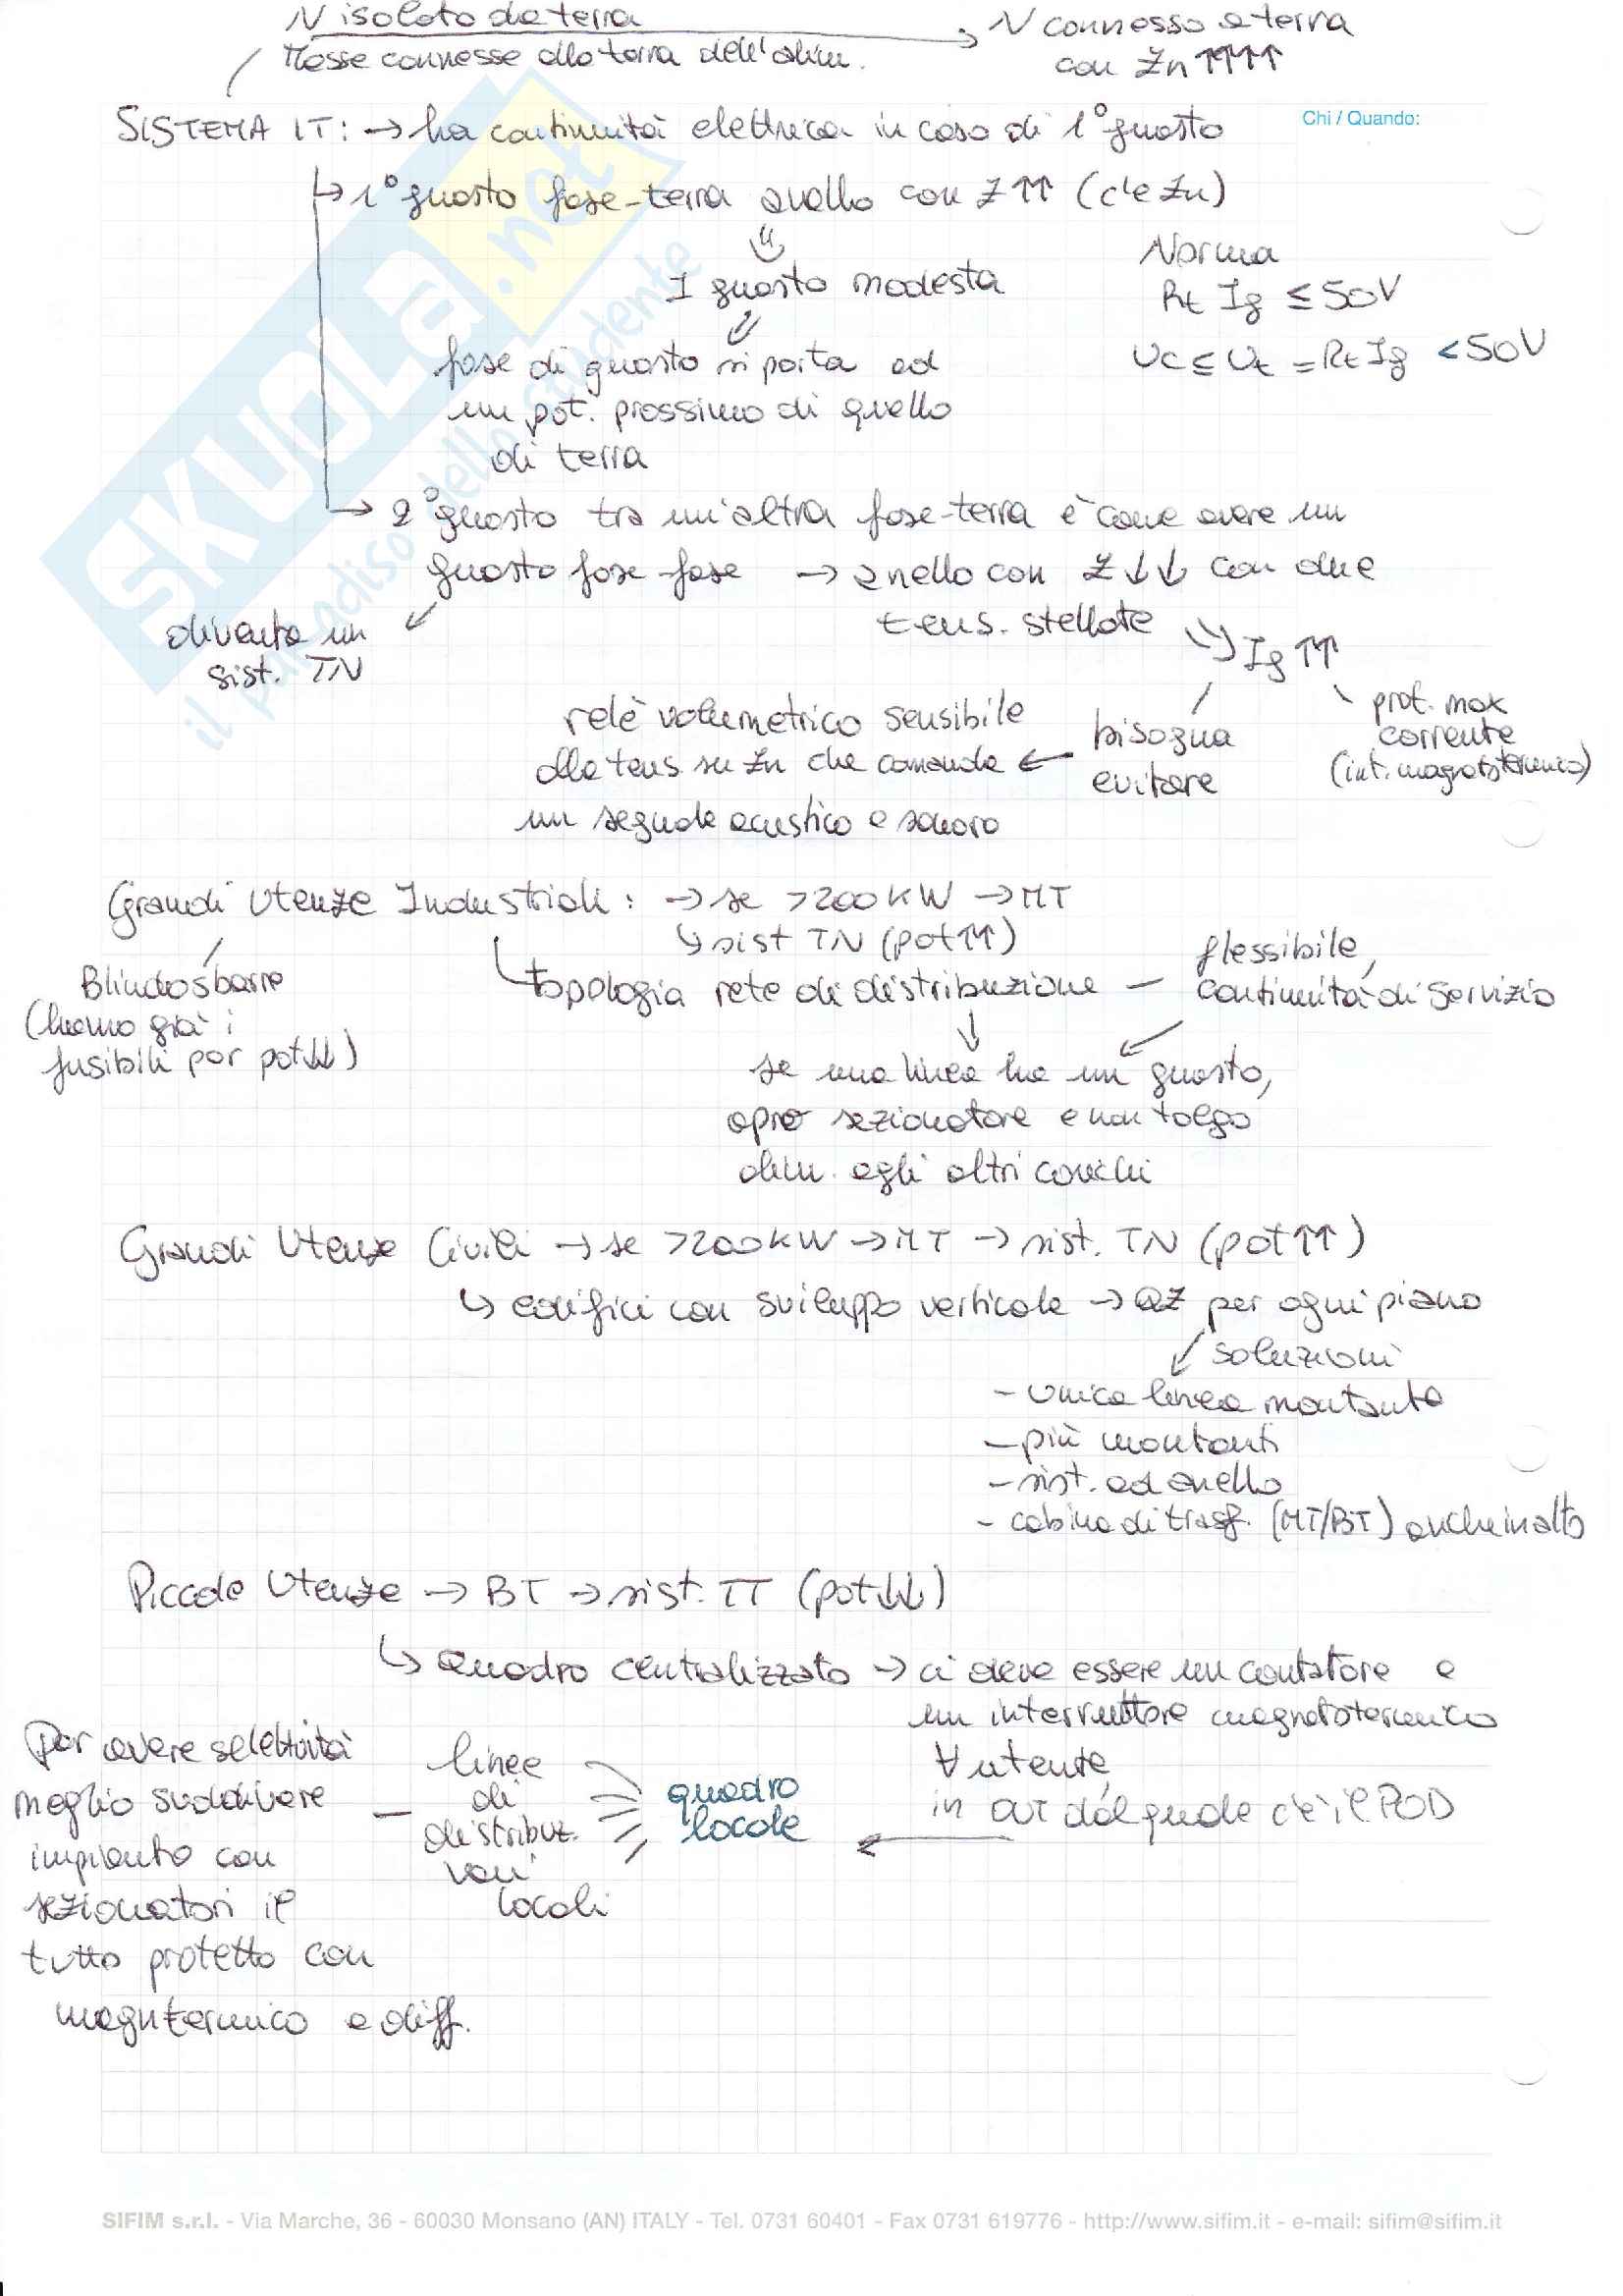 N isolato da terra → N connesso a terra
Masse connesse alla terra dell'alim. con Zn ↑↑↑↑
Chi / Quando:
SISTEMA IT: → ha continuità elettrica in caso di 1° guasto
↳ 1° guasto fase-terra anello con Z ↑↑ (c'è Zn)
⇓
I guasto modesta
⇓
fase di guasto si porta ad
un pot. prossimo di quello
di terra
Norma
Rt Ig ≤ 50V
Uc ≤ Ut = Rt Ig < 50V
→ 2° guasto tra un'altra fase-terra è come avere un
guasto fase-fase → anello con Z ↓↓ con due
tens. stellate ⇒ Ig ↑↑
diventa un
sist. TN
prot. max
corrente
(int. magnetotermico)
bisogna
evitare
relè volumetrico sensibile
alla tens. su Zn che comanda ←
un segnale acustico e sonoro
Grandi Utenze Industriali: → se >200kW → MT
↳ sist TN (pot ↑↑)
Blindosbarre
(hanno già i
fusibili per pot ↓↓)
topologia rete di distribuzione — flessibile,
continuità di servizio
↓
se una linea ha un guasto,
apro sezionatore e non tolgo
alim. agli altri carichi
Grandi Utenze Civili → se >200kW → MT → sist. TN (pot ↑↑)
↳ edifici con sviluppo verticale → QZ per ogni piano
↙ soluzioni
- unica linea montante
- più montanti
- sist. ad anello
- cabina di trasf. (MT/BT) anche in alto
Piccole Utenze → BT → sist. TT (pot ↓↓)
↳ Quadro centralizzato → ci deve essere un contatore e
un interruttore magnetotermico
∀ utente,
in al quale c'è il POD
←
quadro
locale
linee
di
distribuz.
vari
locali
Per avere selettività
meglio suddivere
impianto con
sezionatori il
tutto protetto con
magntermico e diff.
SKUOLA.net
il paradiso dello studente
SIFIM s.r.l. - Via Marche, 36 - 60030 Monsano (AN) ITALY - Tel. 0731 60401 - Fax 0731 619776 - http://www.sifim.it - e-mail: sifim@sifim.it